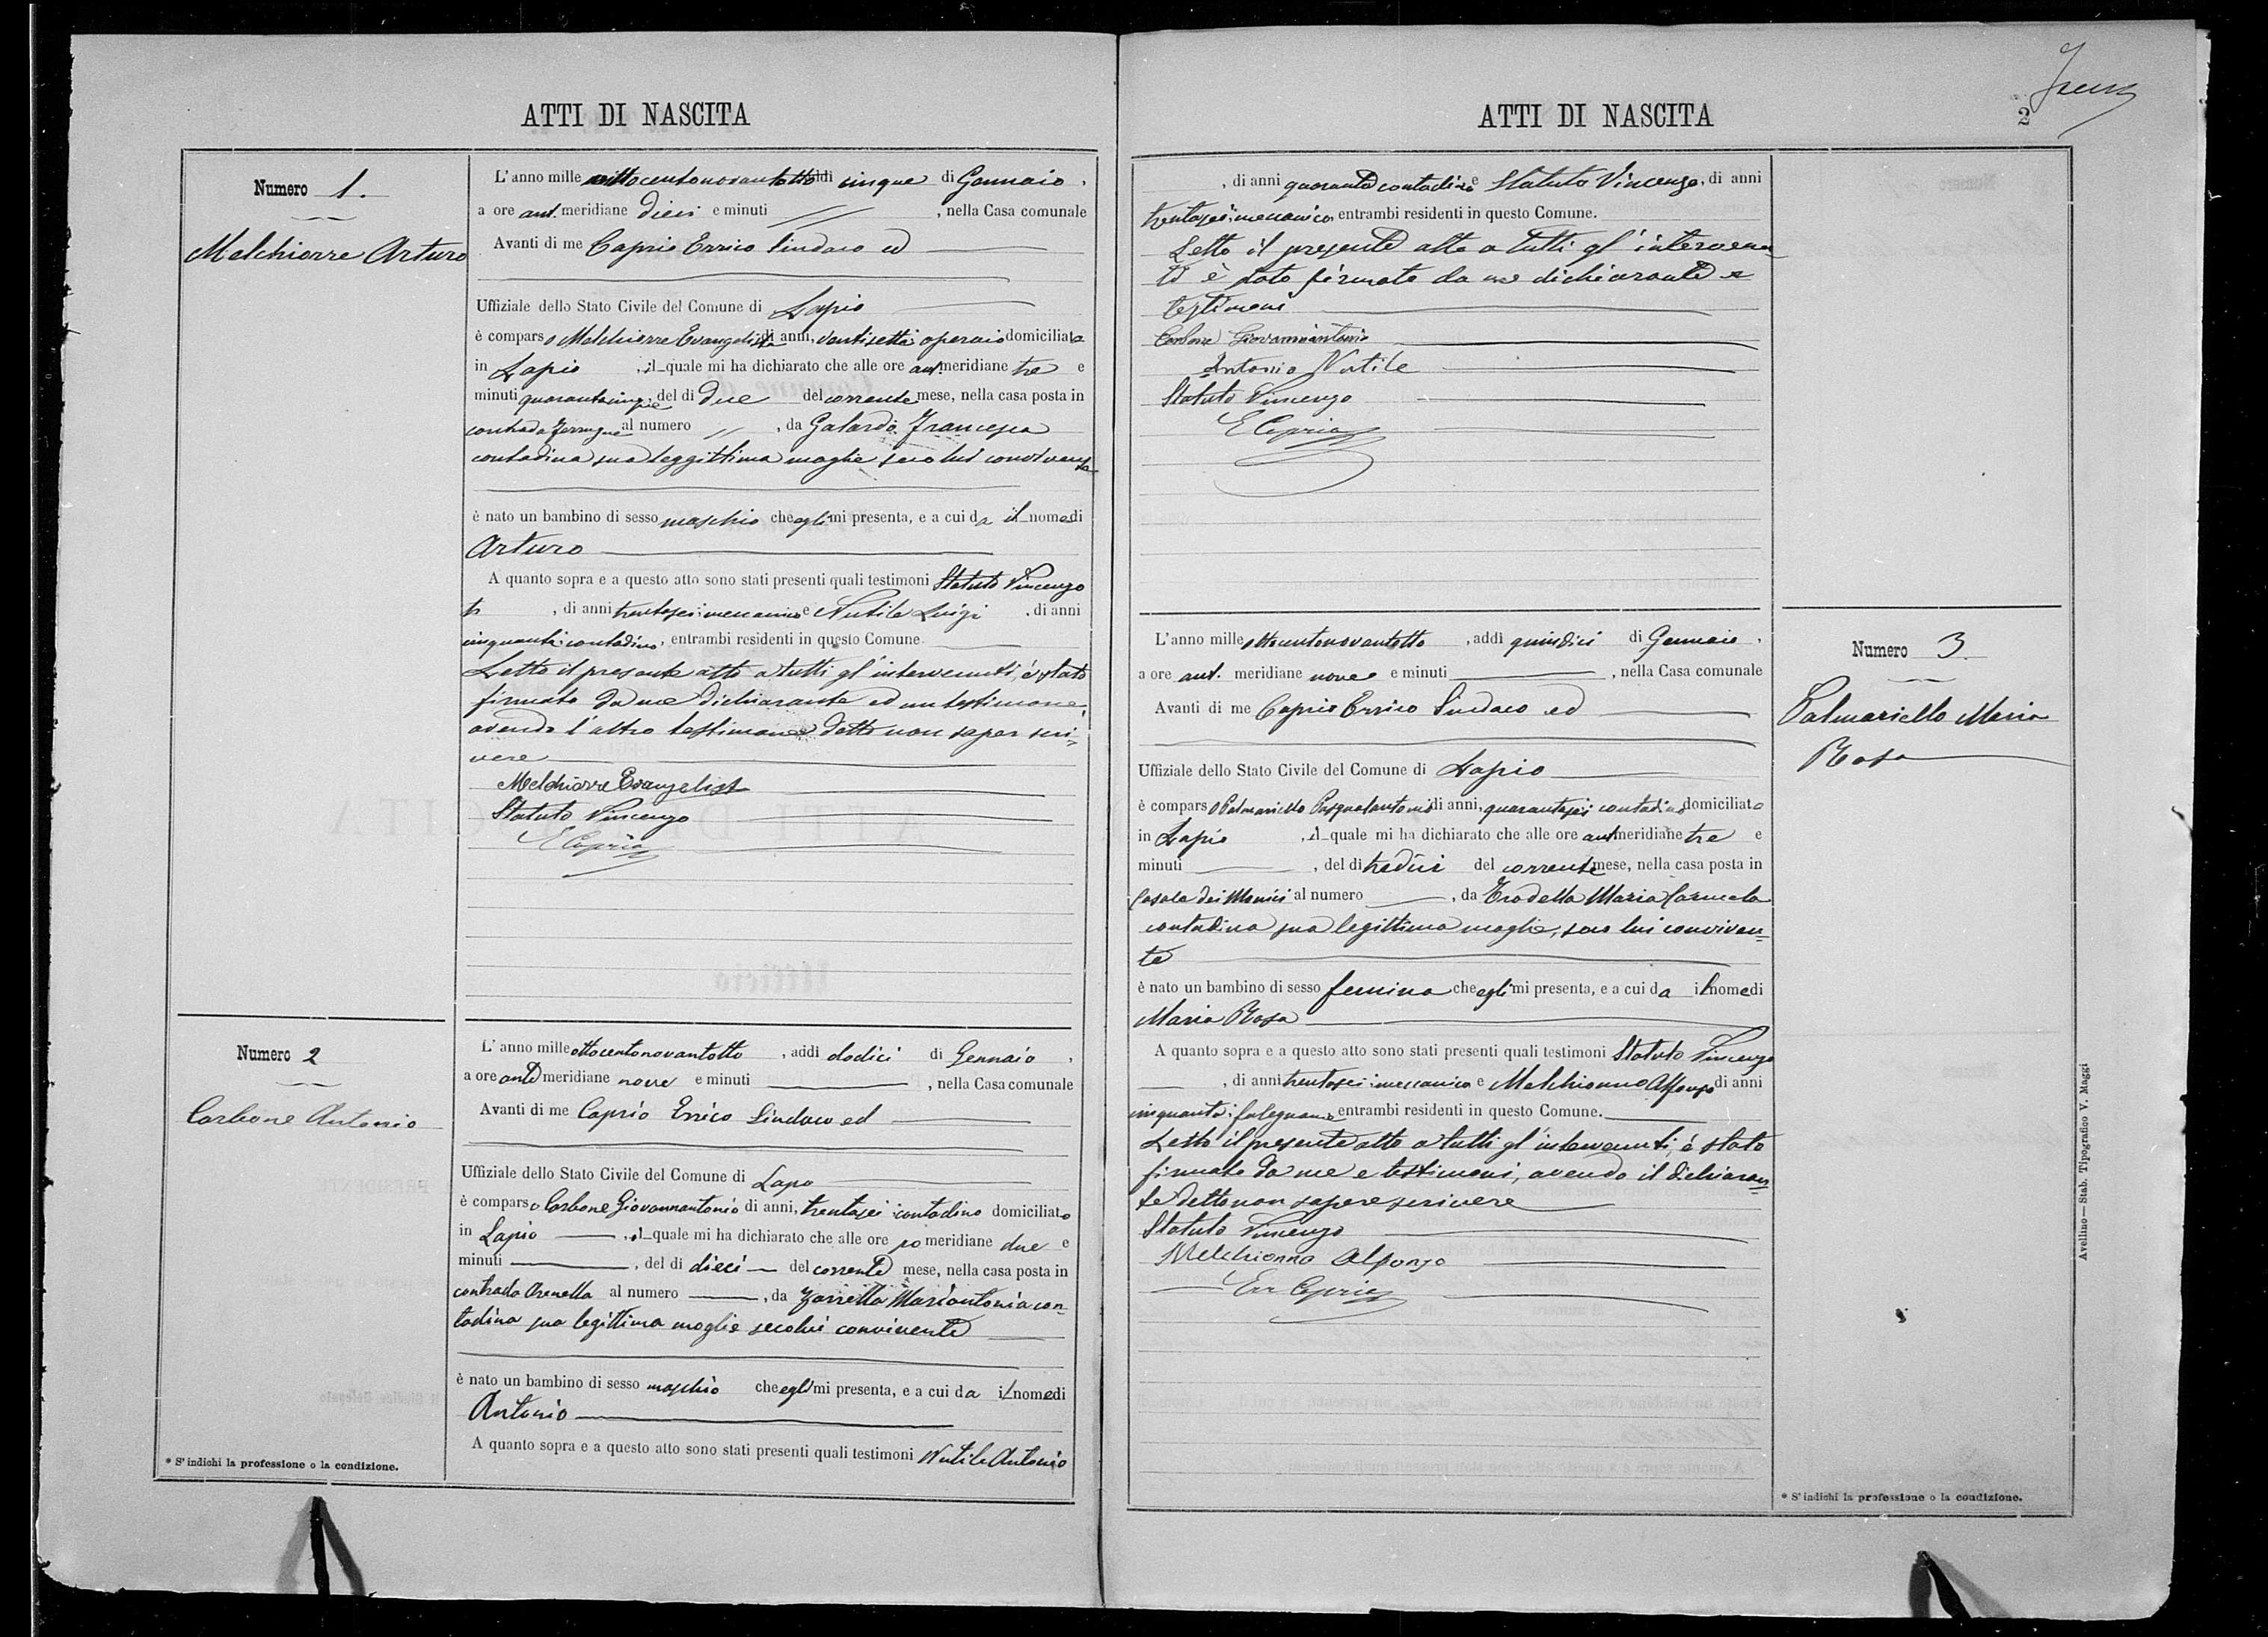 ATTI DI NASCITA
Numero 1.
Melchiorre Arturo
L'anno mille ottocentonovantotto addì cinque di Gennaio,
a ore ant. meridiane dieci e minuti //, nella Casa comunale
Avanti di me Caprio Errico Sindaco ed
Uffiziale dello Stato Civile del Comune di Lapio
è comparso Melchiorre Evangelista di anni, ventisette operaio domiciliato
in Lapio, il quale mi ha dichiarato che alle ore ant. meridiane tre e
minuti quarantacinque, del dì due del corrente mese, nella casa posta in
contrada al numero //, da Galardo Francesca
contadina sua leggittima moglie seco lui convivente
è nato un bambino di sesso maschio che egli mi presenta, e a cui da il nome di
Arturo
A quanto sopra e a questo atto sono stati presenti quali testimoni Statuto Vincenzo
tr, di anni trentasei meccanico e Nutile Luigi, di anni
cinquanta contadino, entrambi residenti in questo Comune.
Letto il presente atto a tutti gl'intervenuti, è stato
firmato da me dichiarante ed un testimone,
avendo l'altro testimone detto non saper scri=
vere
Melchiorre Evangelist
Statuto Vincenzo
E Caprio
Numero 2
Carbone Antonio
L'anno mille ottocentonovantotto, addì dodici di Gennaio,
a ore ante meridiane nove e minuti, nella Casa comunale
Avanti di me Caprio Errico Sindaco ed
Uffiziale dello Stato Civile del Comune di Lapio
è comparso Carbone Giovannantonio di anni, trentasei contadino domiciliato
in Lapio, il quale mi ha dichiarato che alle ore po meridiane due e
minuti, del dì dieci del corrente mese, nella casa posta in
contrada Arenella al numero, da Zarrella Mariantonia con=
tadina sua legittima moglie secolui convivente
è nato un bambino di sesso maschio che egli mi presenta, e a cui da il nome di
Antonio
A quanto sopra e a questo atto sono stati presenti quali testimoni Nutile Antonio
* S'indichi la professione o la condizione.
ATTI DI NASCITA
2
, di anni quaranta contadino e Statuto Vincenzo, di anni
trentasei meccanico, entrambi residenti in questo Comune.
Letto il presente atto a tutti gl'intervenu=
ti è stato firmato da me dichiarante e
testimoni
Carbone Giovannantonio
Antonio Nutile
Statuto Vincenzo
E Caprio
Numero 3.
Palmariello Maria
Rosa
L'anno mille ottocentonovantotto, addì quindici di Gennaio,
a ore ant. meridiane nove e minuti, nella Casa comunale
Avanti di me Caprio Errico Sindaco ed
Uffiziale dello Stato Civile del Comune di Lapio
è comparso Palmariello Pasqualantonio di anni, quarantasei contadino domiciliato
in Lapio, il quale mi ha dichiarato che alle ore ant meridiane tre e
minuti, del dì tredici del corrente mese, nella casa posta in
Casale dei Monici al numero, da Trodella Maria Carmela
contadina sua legittima moglie, seco lui conviven=
te
è nato un bambino di sesso femina che egli mi presenta, e a cui da il nome di
Maria Rosa
A quanto sopra e a questo atto sono stati presenti quali testimoni Statuto Vincenzo
, di anni trentasei meccanico e Melchionno Alfonso di anni
cinquanta falegname entrambi residenti in questo Comune.
Letto il presente atto a tutti gl'intervenuti, è stato
firmato da me e testimoni, avendo il dichiaran=
te detto non sapere scrivere
Statuto Vincenzo
Melchionno Alfonso
Err Caprio
* S'indichi la professione o la condizione.
Avellino—Stab. Tipografico V. Maggi